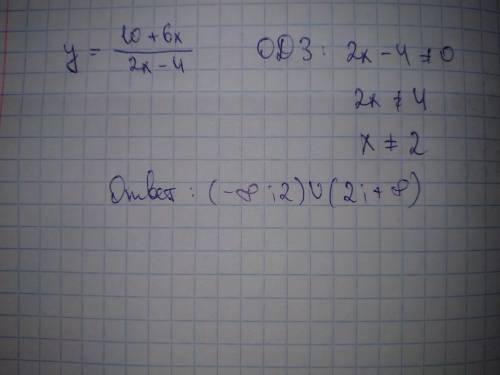 y = (10 + 6x)/(2x - 4) ОДЗ: 2x - 4 ≠ 0
2x ≠ 4
x ≠ 2
Ответ: (-∞; 2) ∪ (2; +∞)